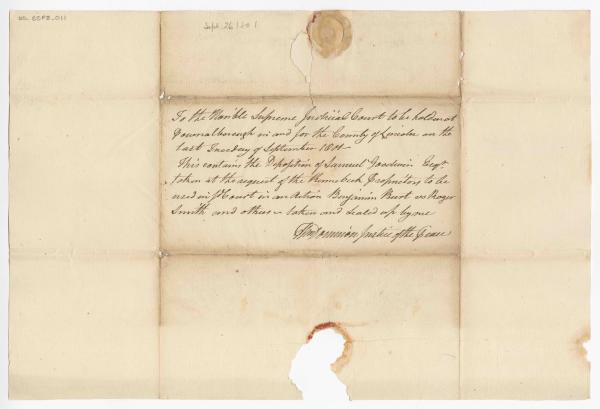 Sept. 26 1801
To the Honble Supreme Judicial Court to be holden at
Pownalborough in and for the County of Lincoln on the
last Tuesday of September 1801
This contains the Deposition of Samuel Goodwin Esqr
taken at the request of the Kennebeck Proprietors to be
used in sd Court in an Action Benjamin Burt vs Roger
Smith and others - taken and sealed up by me
Justice of the Peace